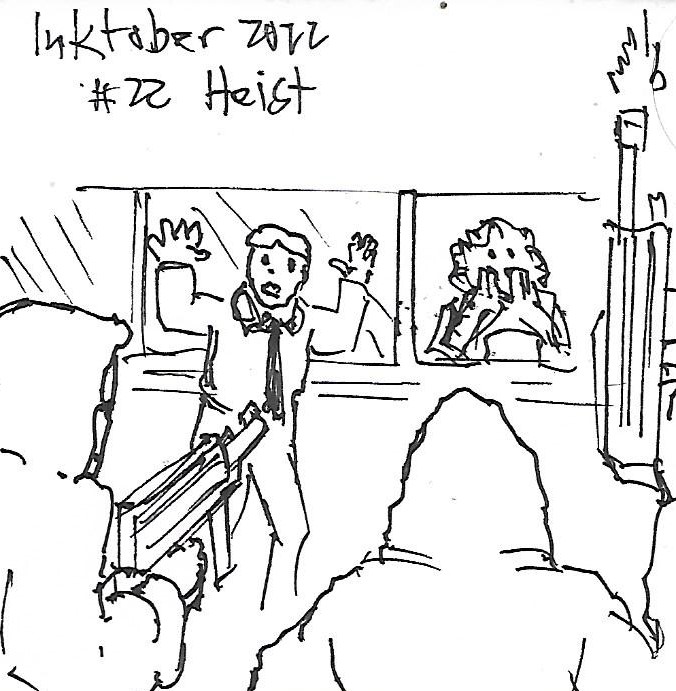 Inktober 2022
#22 Heist